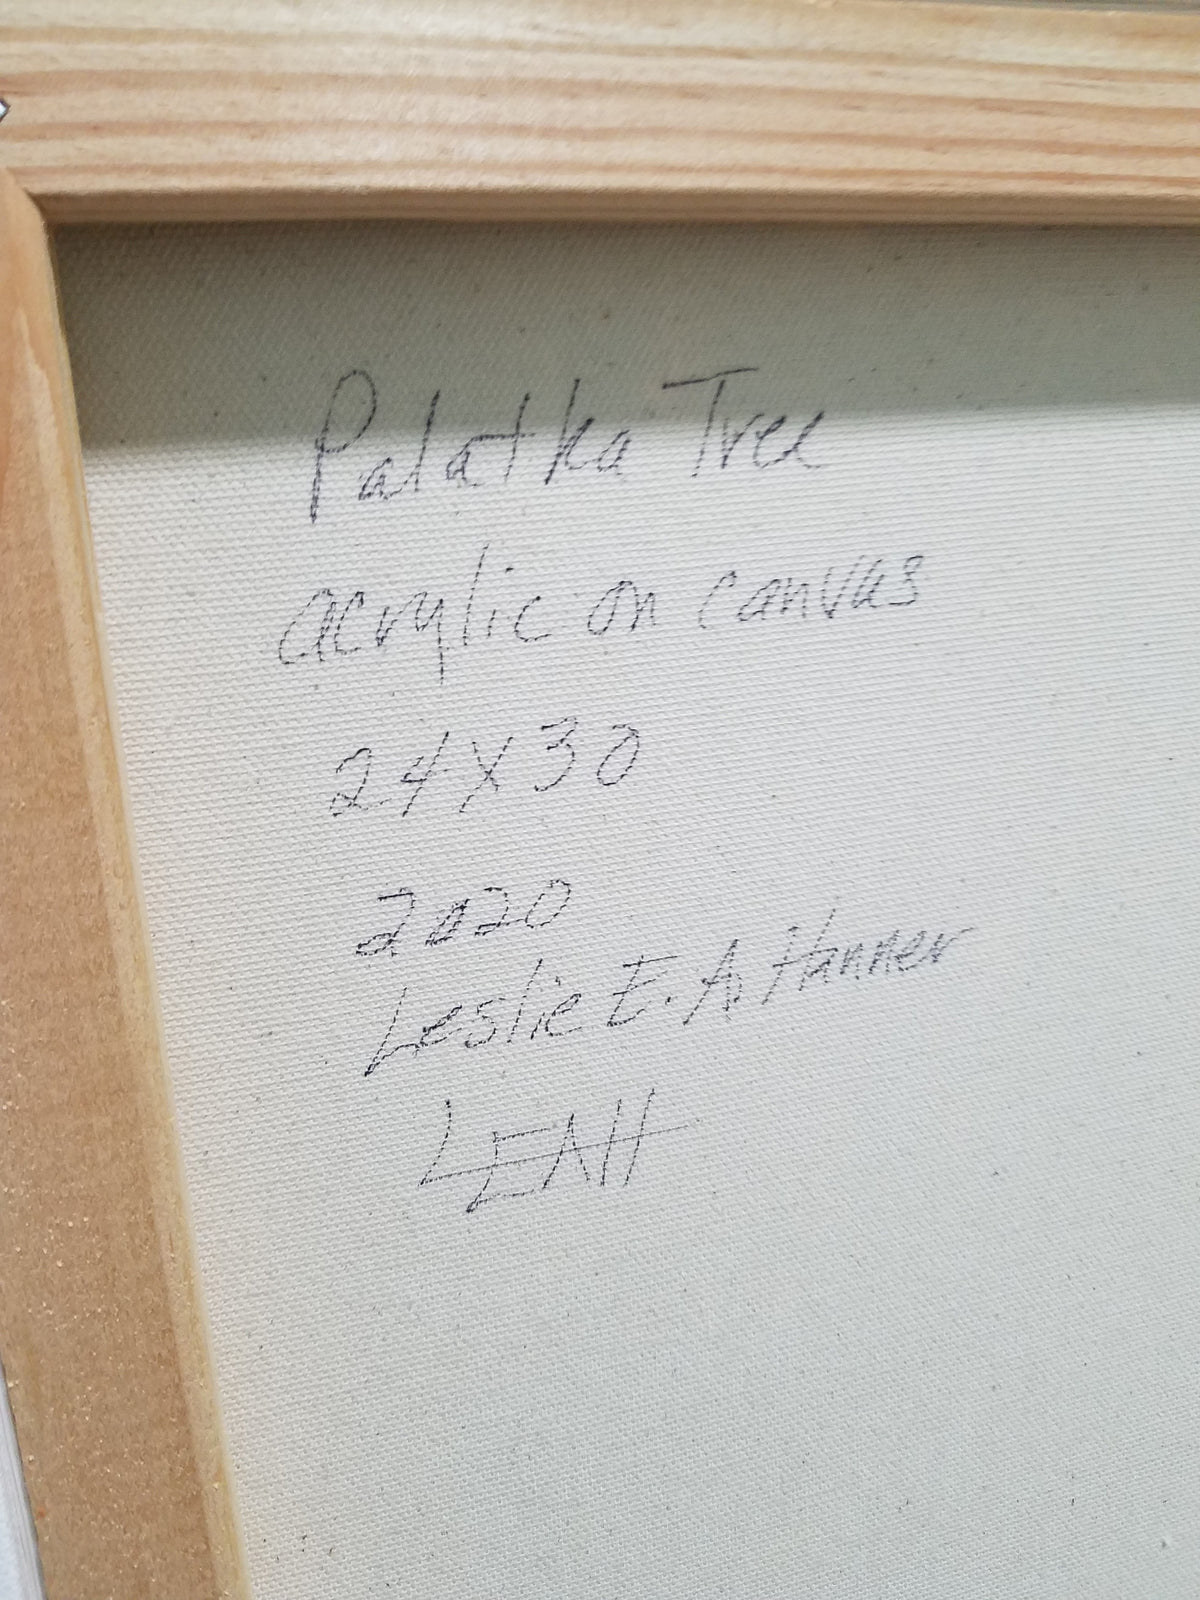 Palatka Tree
acrylic on canvas
24X30
2020
Leslie E. A Hanner
LEAH